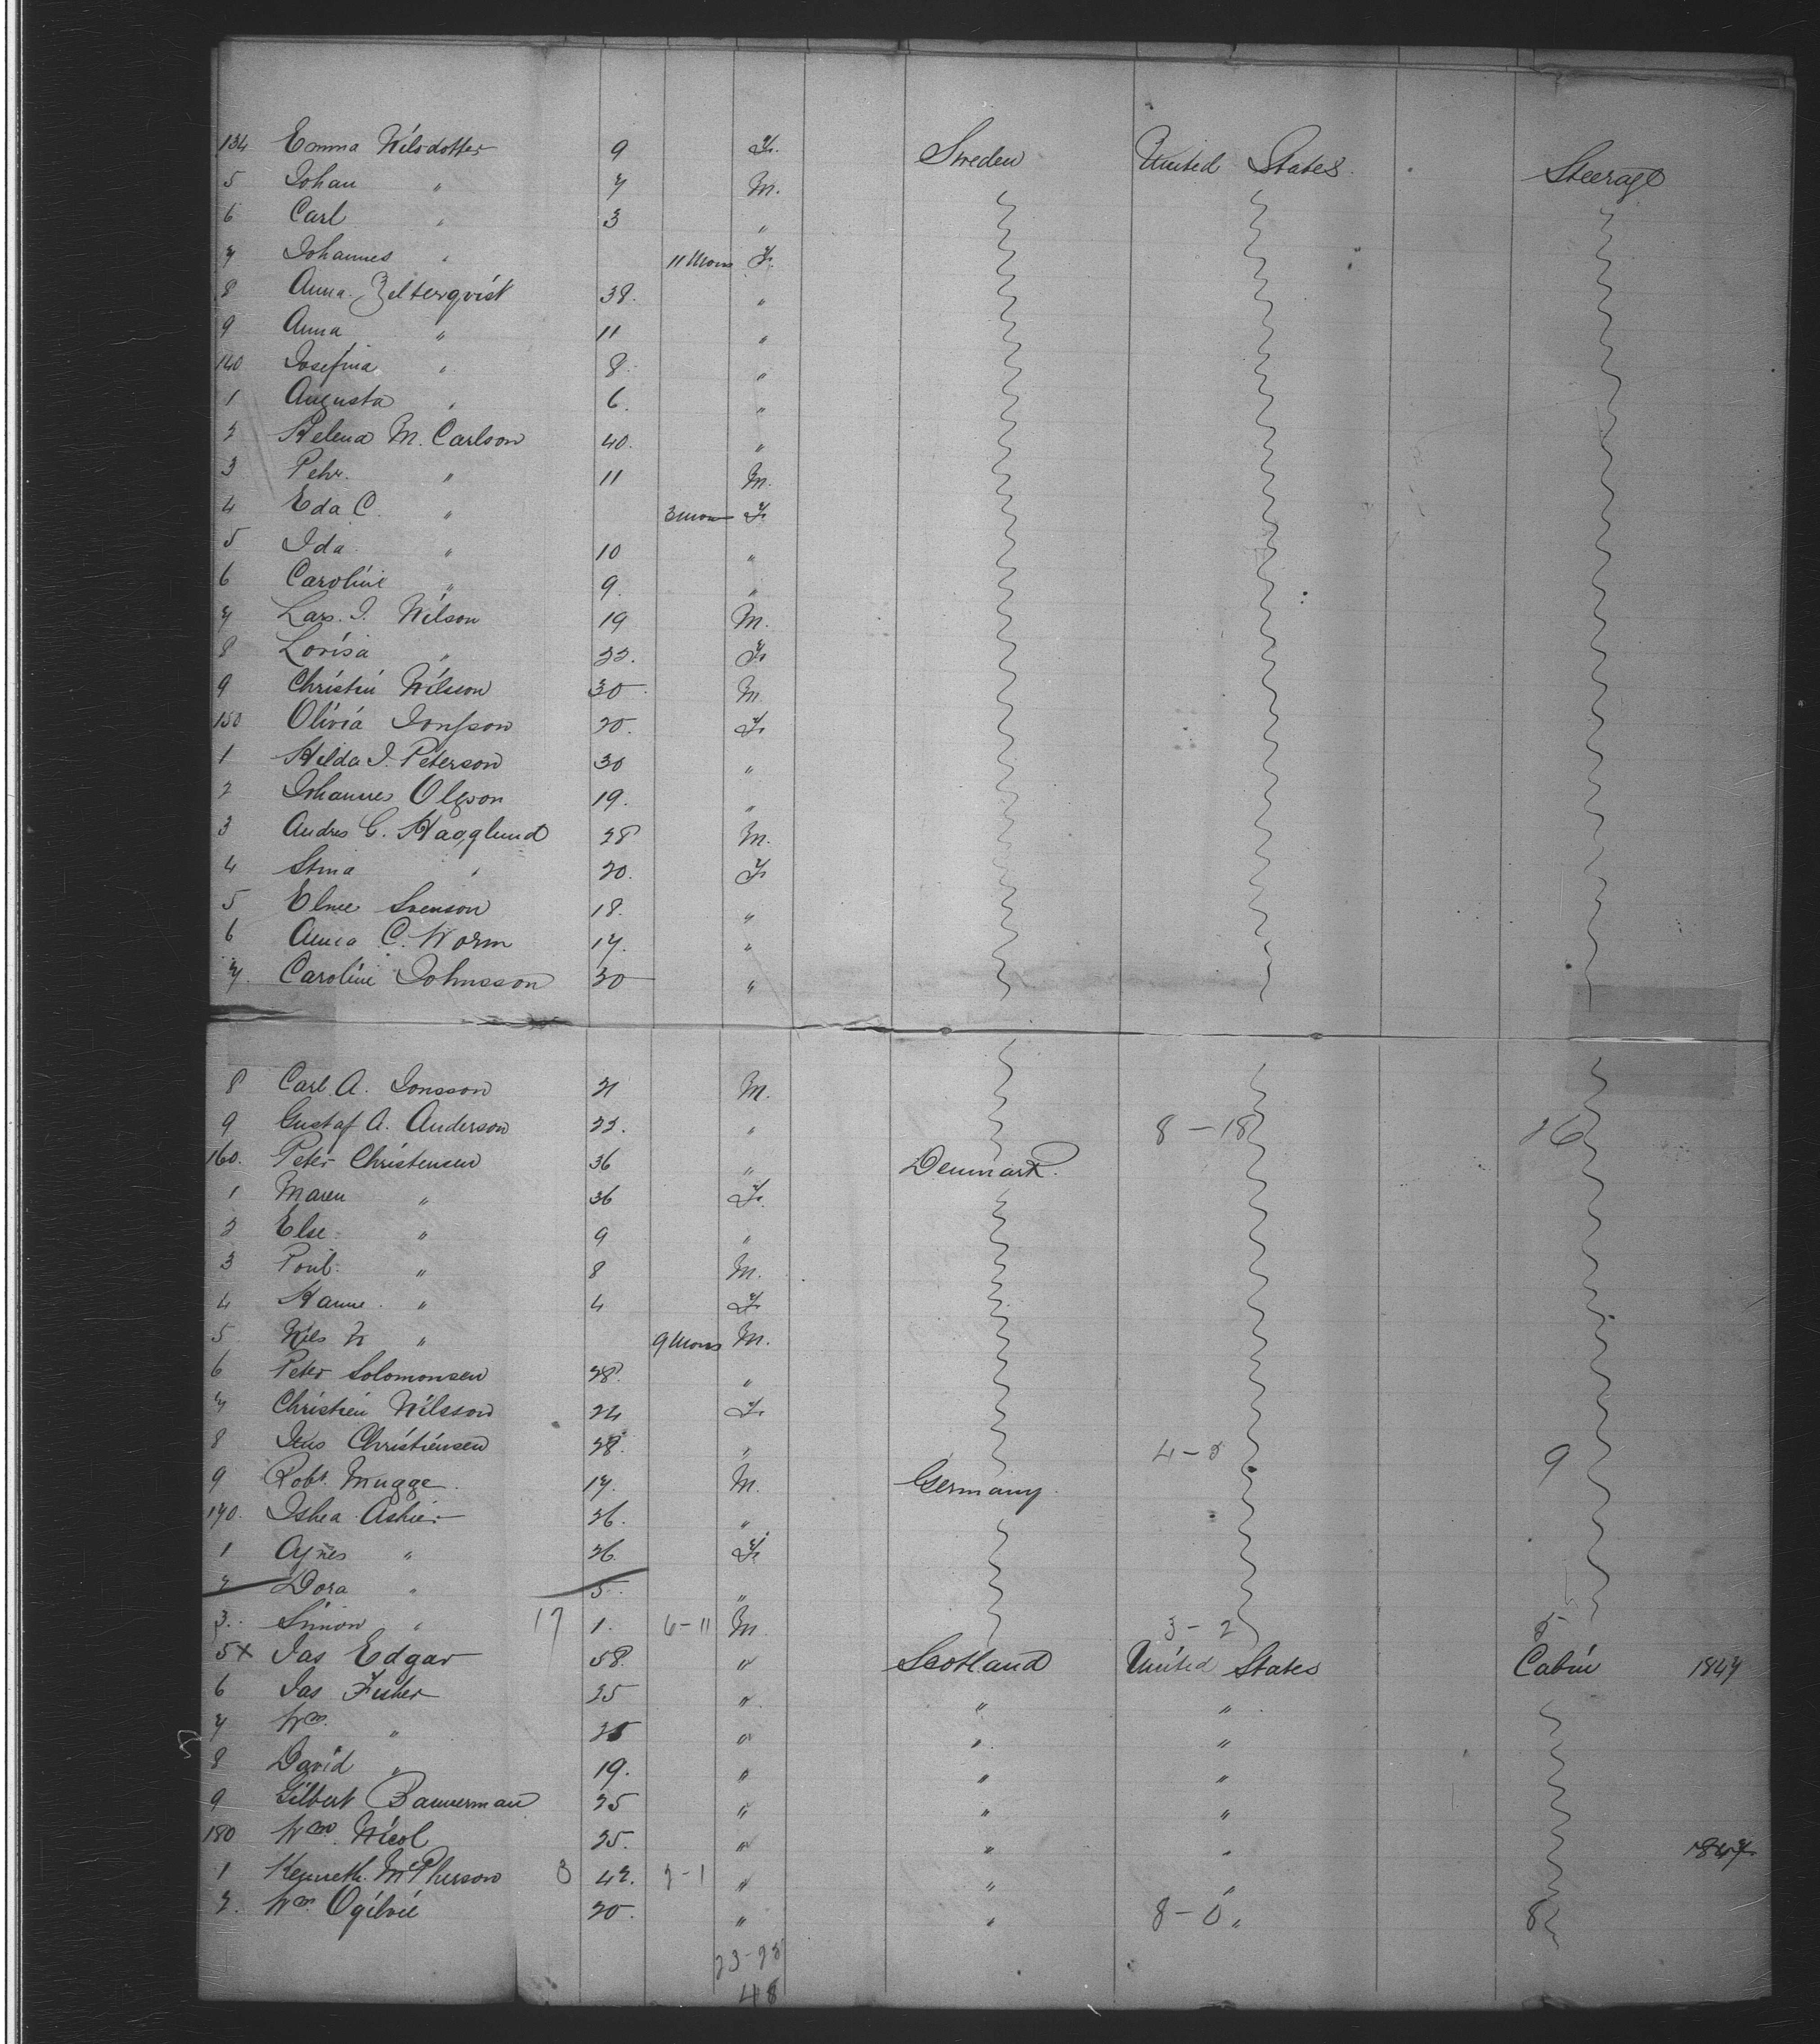 134 Emma Nilsdotter 9 F. Sweden United States. Steerage
5 Johan " 7 M.
6 Carl " 3 "
7 Johannes " 11 Mons F.
8 Anna Zelterqvist 38. "
9 Anna " 11 "
140 Josefina " 8. "
1 Augusta " 6. "
2 Helena M. Carlson 40. "
3 Pehr. " 11 M.
4 Eda C. " 3 mon F.
5 Ida " 10 "
6 Caroline " 9. "
7 Lars. J. Nilson 19 M.
8 Lovisa " 22. F.
9 Christin Nilson 30. M.
150 Olivia Jonsson 20. F.
1 Hilda J. Peterson 30 "
2 Johannes Olsson 19. "
3 Andres G. Hagglund 28 M.
4 Stina " 20. F.
5 Elnee Svenson 18. "
6 Anna C. Worm 17. "
7. Caroline Johnsson 30 "
8 Carl A. Jonsson 21 M.
9 Gustaf A. Anderson 22. " 8 - 18 26
160. Peter Christensen 36 " Denmark.
1 Maren " 36 F.
2 Else " 9 "
3 Poul. " 8 M.
4 Hanne. " 4 F.
5 Nils N " 9 Mons M.
6 Peter Solomonsen 28. "
7 Christien Nilsson 24 F.
8 Jens Christiensen 28. " 4 - 5 9
9 Robt. Mugge. 17. M. Germany.
170. Ishea Asher 26. "
1 Agnes " 26. F.
2 Dora " 5. "
3. Simon " 17 1. 6 - 11 M. 3 - 2 5
5 x Jas Edgar 58. " Scotland United States Cabin 1847
6 Jas Fisher 25 " " "
7 Wm. " 25 " " "
8 David " 19. " " "
9 Gilbert Bannerman 25 " " "
180 Wm. Nicol 25. " " " 1847
1 Kenneth McPherson 3 42. 2 - 1 " " "
2. Wm. Ogilvie 20. " " 8 - 0 " 8
23 - 28
48